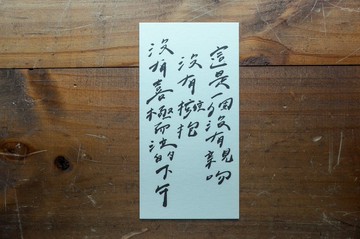 這是個沒有親吻
沒有擁抱
沒有喜極而泣的下午